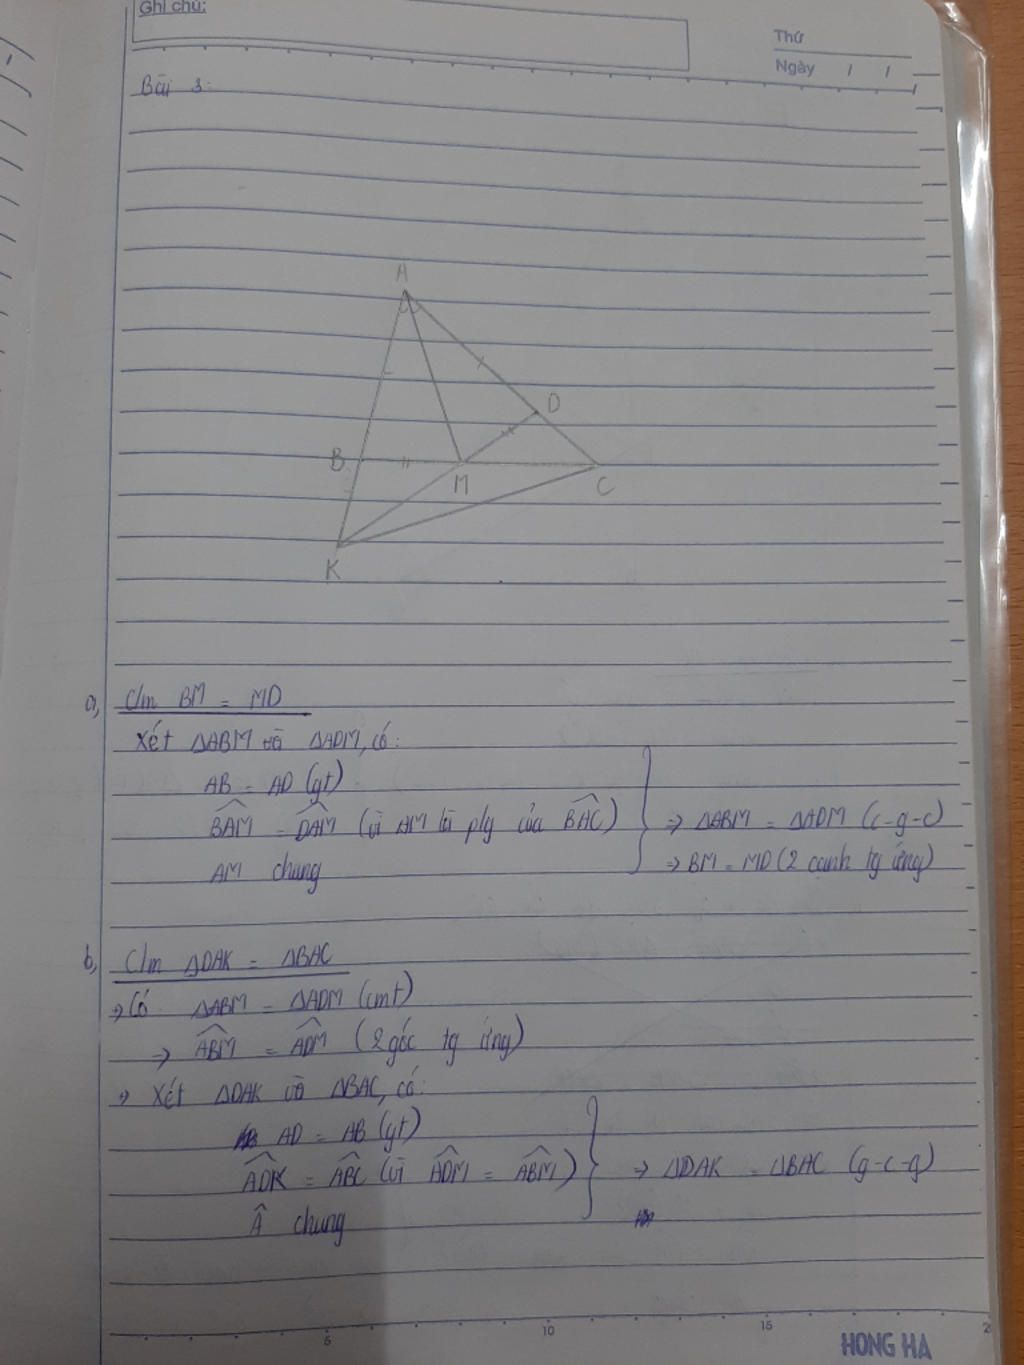 Ghi chú:
Thứ
Ngày / /
Bài 3:
A
D
B
M
C
K
a, C/m BM = MD
Xét ΔABM và ΔADM, có:
AB = AD (gt)
BAM = DAM (vì AM là plg của BAC) ⇒ ΔABM = ΔADM (c-g-c)
AM chung ⇒ BM = MD (2 cạnh tg ứng)
b, C/m ΔDAK = ΔBAC
→ Có ΔABM = ΔADM (cmt)
⇒ ABM = ADM (2 góc tg ứng)
→ Xét ΔDAK và ΔBAC, có:
AD = AB (gt)
ADK = ABC (vì ADM = ABM) ⇒ ΔDAK = ΔBAC (g-c-g)
Â chung
5 10 15 2
HONG HA